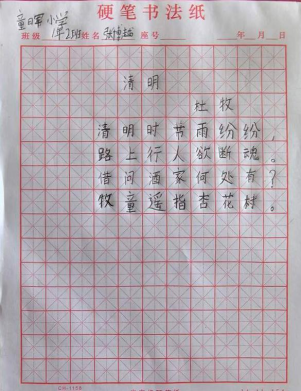 硬笔书法纸
童晖小学
班级 1年2班 姓名 座号 年 月 日
清明
杜牧
清明时节雨纷纷，
路上行人欲断魂。
借问酒家何处有？
牧童遥指杏花村。